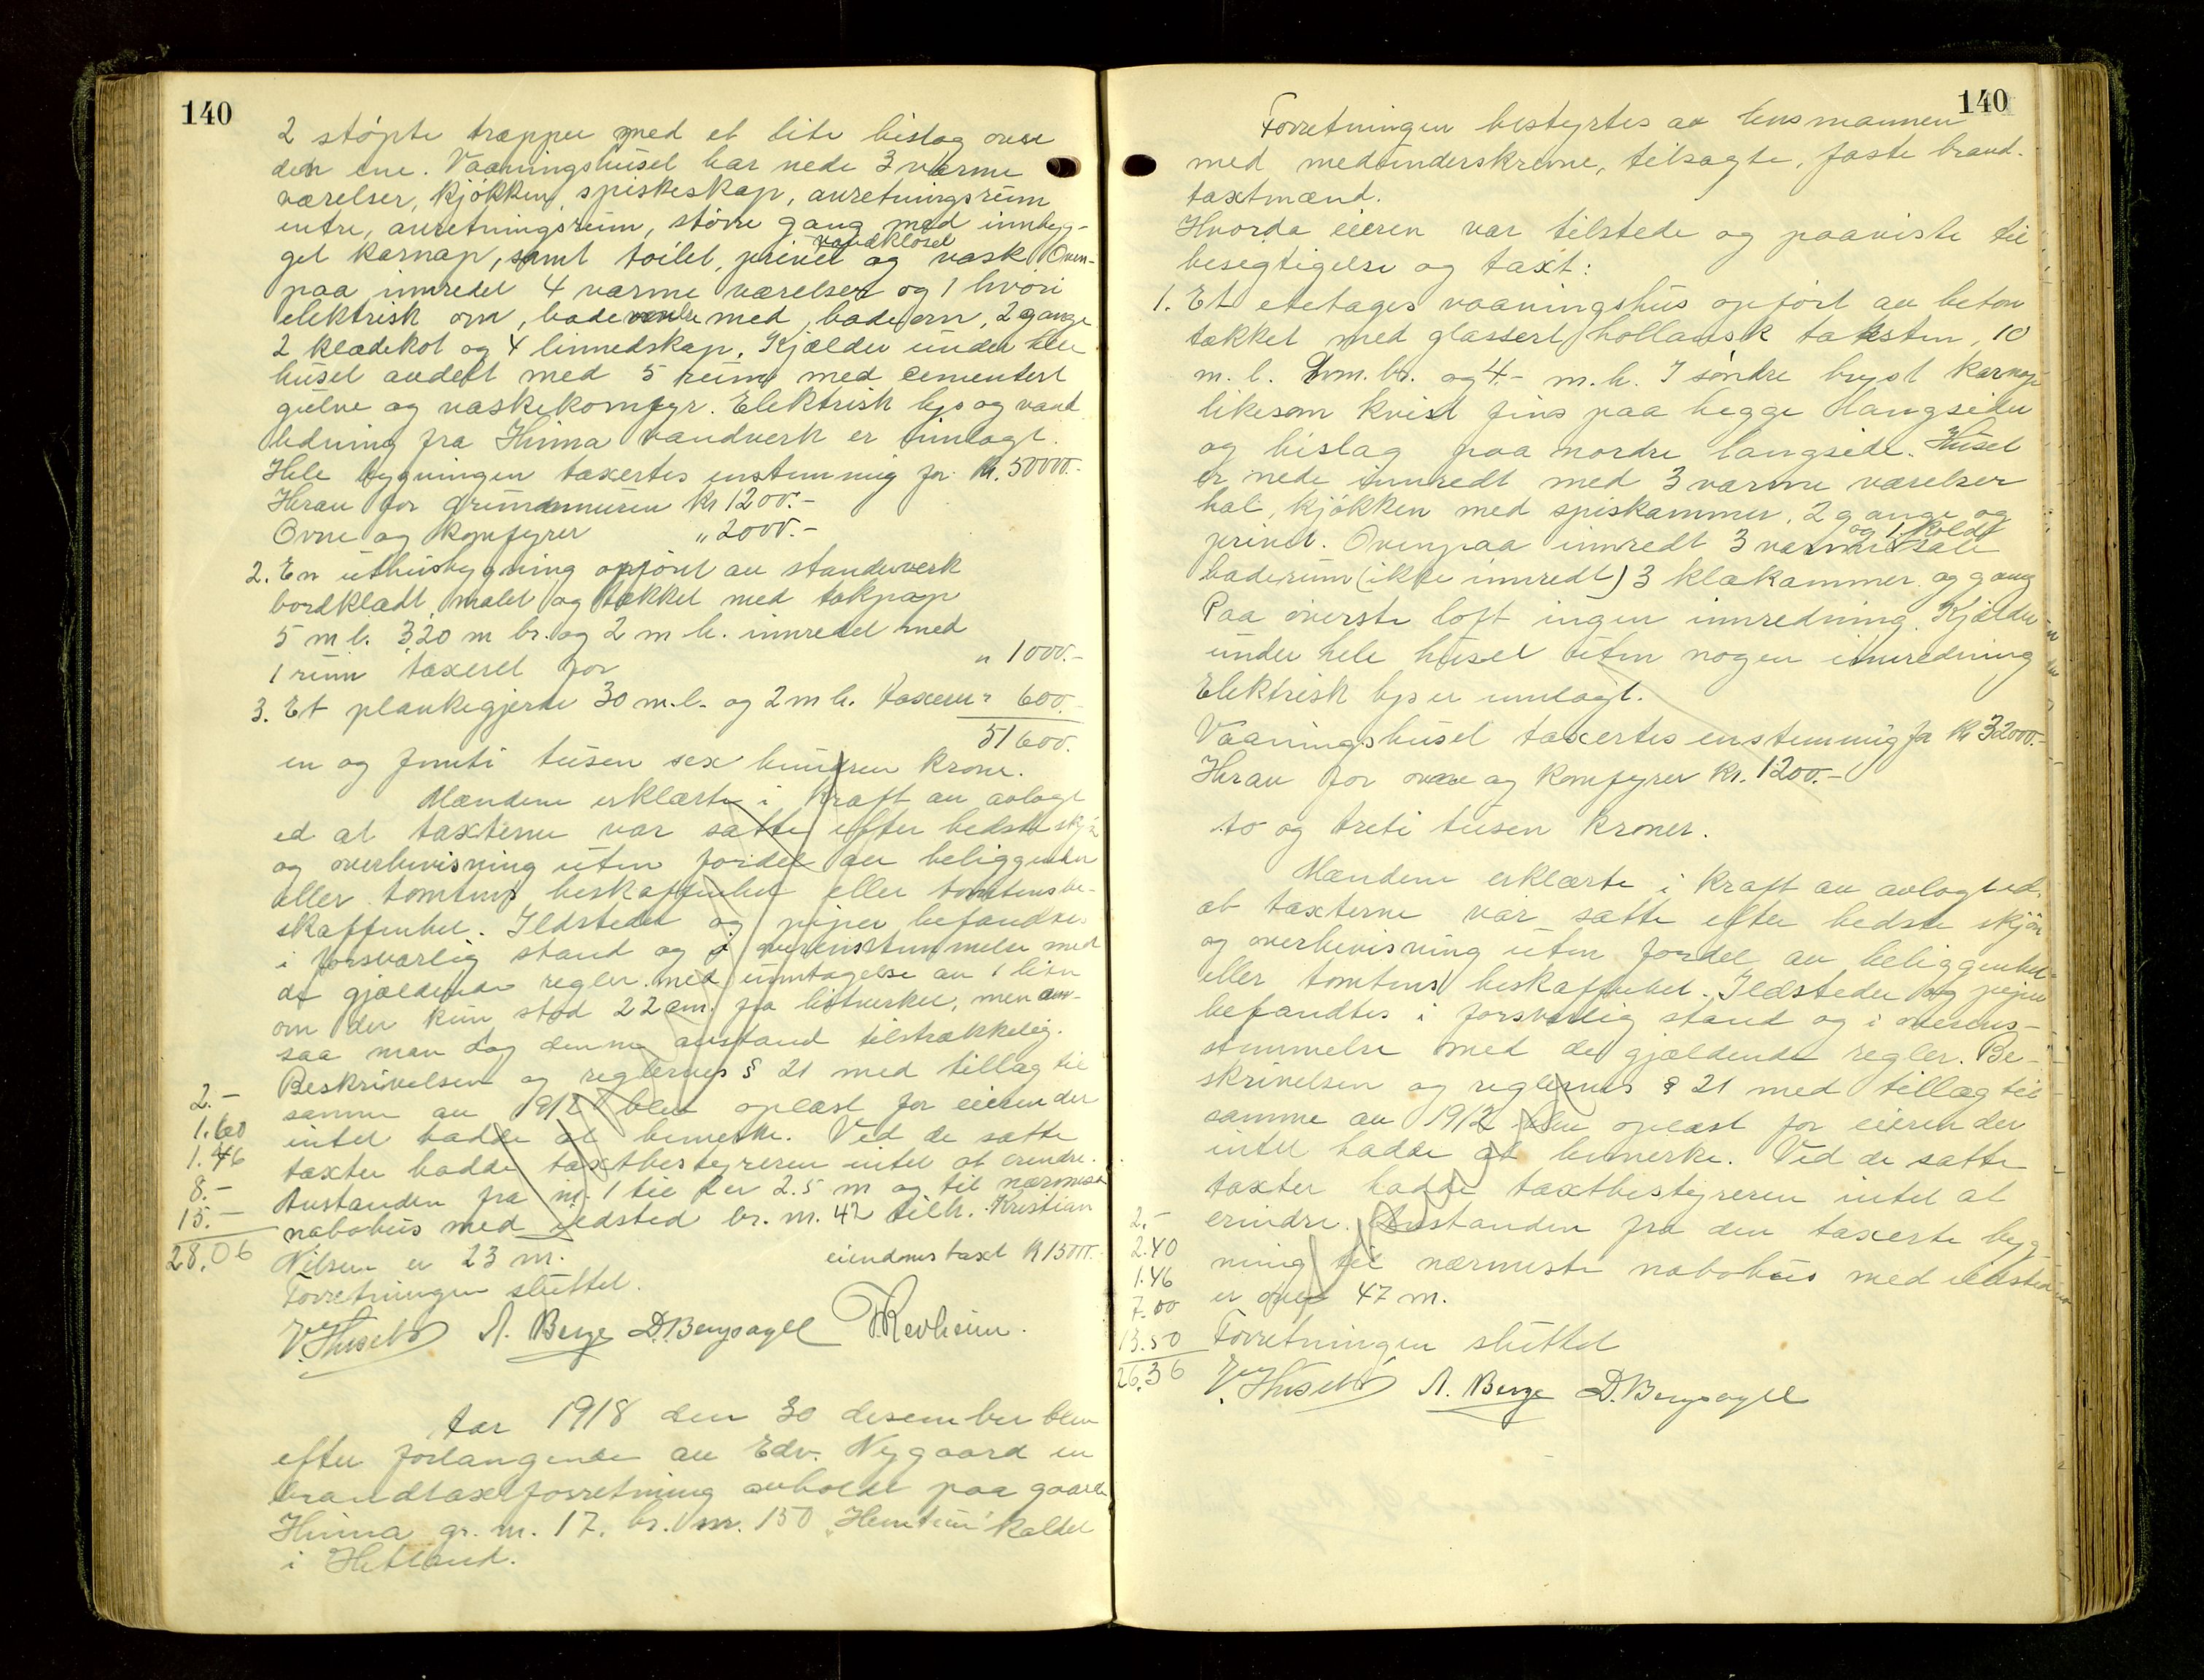 140
2 støpte trapper med et lite bislag over
den ene. Vaaningshuset har nede 3 varme
værelser, kjøkken, spiskeskap, anretningsrum
entre, anretningsrum, større gang med innbyg-
vandkloset
get karnap, samt toilet, privet og vask. Oven-
paa innredet 4 varme værelser og 1 hvori
elektrisk ovn, bade med badeovn, 2 gange
2 klædekot og 4 linnedskap. Kjælder under hele
huset avdelt med 5 rum med cementert
gulve og vaskekomfyr. Elektrisk lys og vand
ledning fra Hinna vandverk er innlagt.
Hele bygningen taxertes enstemmig for Kr. 50000.-
Herav for grundmuren Kr 1200.-
Ovne og komfyrer " 2000.-
2. En uthusbygning opført av standerverk
bordklædt, malet og tækket med takpap
5 m l. 3,20 m br. og 2 m h. innredet med
1 rum taxeret for " 1000.-
3. Et plankegjerde 30 m.l. og 2 m h. taxeres 600.-
51600.
en og femti tusen sex hundren krone.
Mændene erklærte i kraft av avlagt
ed at taxterne var satte efter bedste skjø
og overbevisning uten fordel av beliggenhet
eller tomtens beskaffenhet eller tomtens be-
skaffenhet. Ildsteder og piper befandtes
i forsvarlig stand og i overensstemmelse med
de gjældende regler med unntagelse av 1 liten
ovn der kun stod 22 cm. fra listverket, men an-
saa man dog denne avstand tilstrækkelig.
Beskrivelsen og reglernes § 21 med tillæg til
samme av 1912 blev oplæst for eieren der
intet hadde at bemerke. Ved de satte
taxter hadde taxtbestyreren intet at erindre.
Avstanden fra nr. 1 til 2 er 2.5 m og til nærmeste
nabohus med ildsted br. nr. 42 tilh. Kristian
Nilsen er 23 m. eiendomstaxt Kr 15000.-
Forretningen sluttet.
2.-
1.60
1.46
8.-
15.-
28.06
V. Huseb A. Berge D. Bengsagel T. Revheim.
Aar 1918 den 30 desember blev
efter forlangende av Edv. Nygaard en
brandtaxtforretning avholdt paa gaarden
Hinna gr. nr. 17. br. nr. 150 "Hemtun" kaldet
i Hetland.
140
Forretningen bestyrtes av lensmannen
med medunderskrevne, tilsagte, faste brand-
taxtmænd.
Hvorda eieren var tilstede og paaviste til
besigtigelse og taxt:
1. Et etetages vaaningshus opført av beton
tækket med glassert hollansk taksten, 10
m. l. 9 m. br. og 4.- m. h. I søndre bryst karnap
likesom kvist fins paa begge langsider
og bislag paa nordre langside. Huset
er nede innredt med 3 varme værelser
hal, kjøkken med spiskammer, 2 gange og
og 1 koldt
privet. Ovenpaa innredt 3 varme sale
baderum (ikke innredt) 3 klækammer og gang
Paa øverste loft ingen innredning. Kjælder
under hele huset uten nogen innredning
Elektrisk lys er innlagt.
Vaaningshuset taxertes enstemmig for Kr 32000.-
Herav for ovne og komfyrer Kr. 1200.-
to og treti tusen kroner.
Mændene erklærte i kraft av avlagt ed.
at taxterne var satte efter bedste skjøn
og overbevisning uten fordel av beliggenhet
eller tomtens beskaffenhet. Ildsteder og piper
befandtes i forsvarlig stand og i overens-
stemmelse med de gjældende regler. Be-
skrivelsen og reglernes § 21 med tillæg til
samme av 1912 blev oplæst for eieren der
intet hadde at bemerke. Ved de satte
taxter hadde taxtbestyreren intet at
erindre. Avstanden fra den taxerte byg-
ning til nærmeste nabohus med ildsted
er over 47 m.
Forretningen sluttet
2.-
2.40
1.46
7.00
13.50
26.36
V. Huseb A. Berge D. Bengsagel